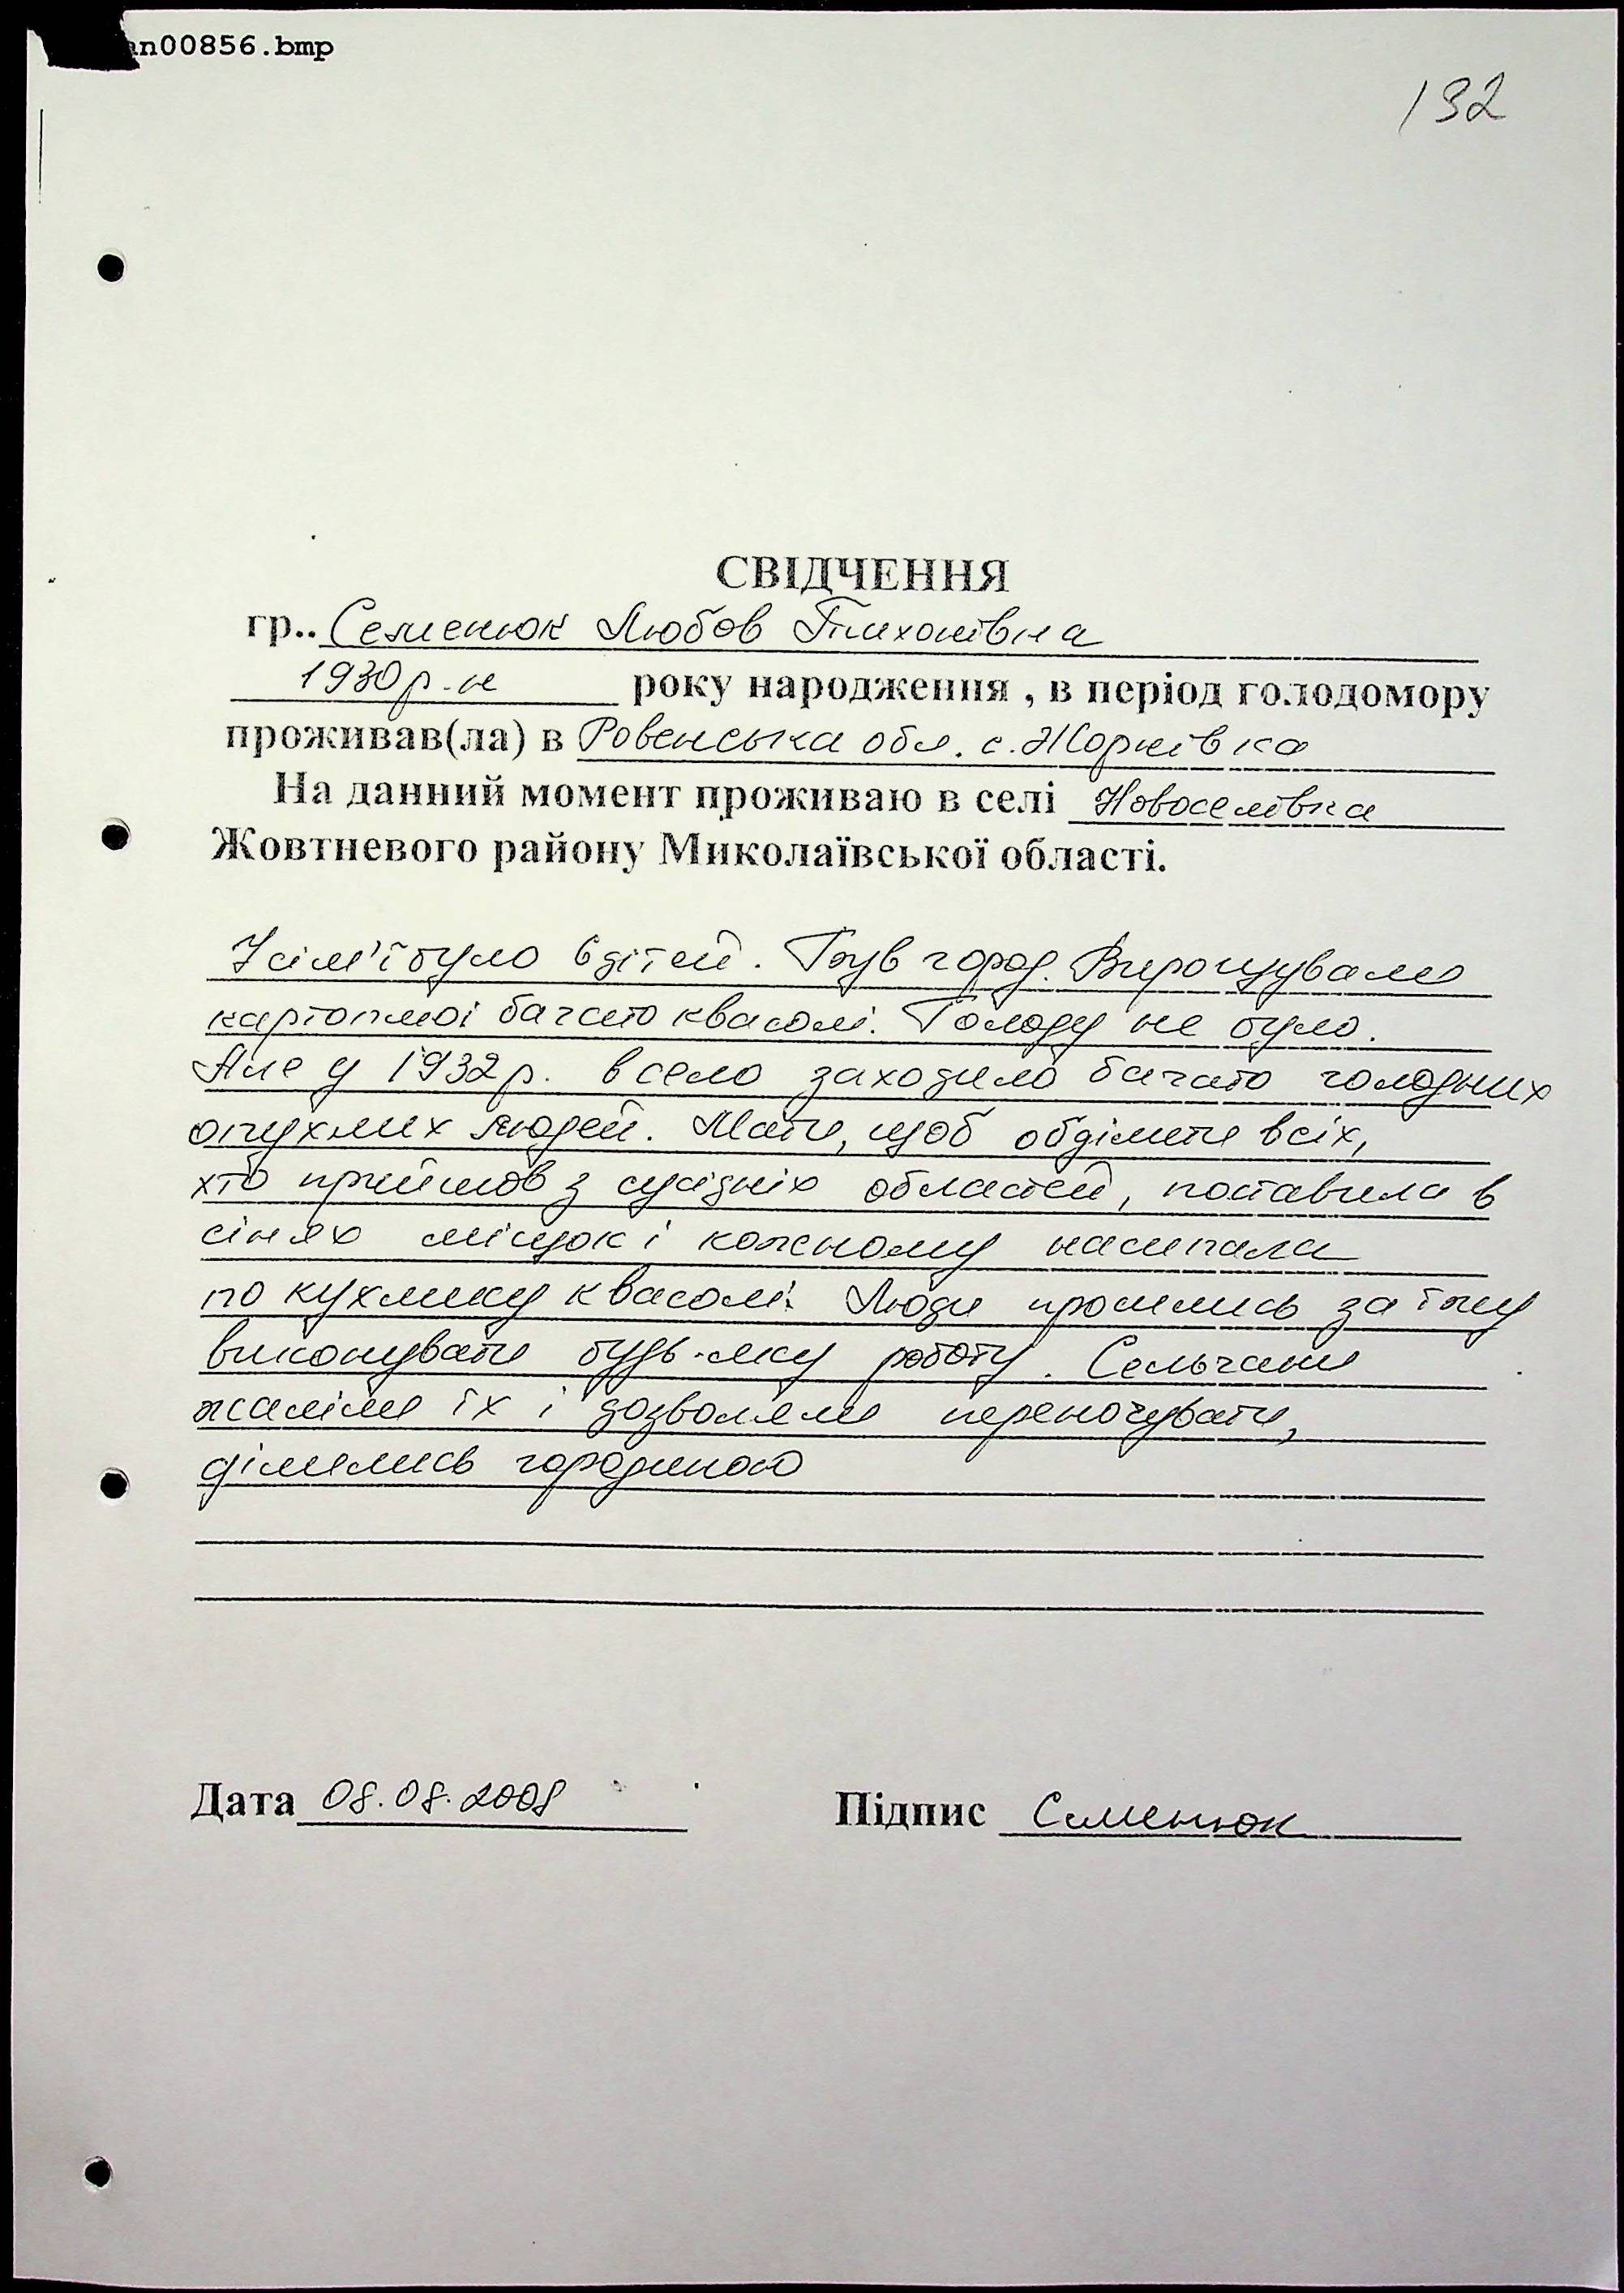 an00856.bmp
132
СВІДЧЕННЯ
гр.. Семенюк Любов Тихонівна
1930 р. н року народження , в період голодомору
проживав(ла) в Ровенська обл. с. Жорнівка
На данний момент проживаю в селі Новоселівка
Жовтневого району Миколаївської області.
У сім'ї було 6 дітей. Був город. Вирощували
картоплю і багато квасолі. Голоду не було.
Але у 1932 р. в село заходило багато голодних
опухлих людей. Мати, щоб обділити всіх,
хто прийшов з сусідніх областей, поставила в
сінях мішок і кожному насипала
по кухлику квасолі. Люди просились за їжу
виконувати будь-яку роботу. Сельчани
жаліли їх і дозволяли переночувати,
ділились городиною
Дата 08.08.2008 Підпис Семенюк